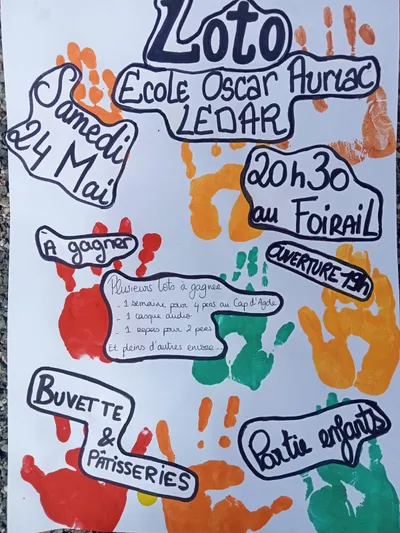 Loto
Ecole Oscar Auriac
LEDAR
Samedi
24 Mai
20h30
au FOIRAIL
OUVERTURE 19h
À gagner
Plusieurs lots à gagner
- 1 semaine pour 4 pers au Cap d'Agde
- 1 casque audio
- 1 repas pour 2 pers
Et pleins d'autres encore...
BUVETTE
&
PÂTISSERIES
Partie enfants